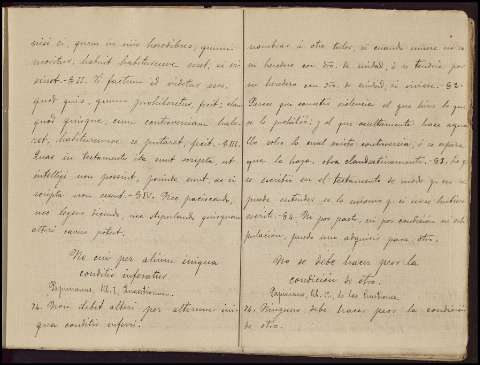 nisi ei, quem in suis heredibus, quum
moritur, habuit habiturusve esset, si vi-
veret. - § II. Vi factum id videtur esse,
quod quis, quum prohiberetur, fecit: clam
quod quisque, cum controversiam habe-
ret, habiturumve se putaret, fecit. - § III.
Quae in testamento ita sunt scripta, ut
intelligi non possint, perinde sunt, ac si
scripta non essent. - § IV. Nec paciscendo,
nec legem dicendo, nec stipulando quisquam
alteri cavere potest.
Ne cui per alium iniqua
conditio inferatur.
Papinianus, lib. I, Quaestionum.
74. Non debet alteri per alterum ini-
qua conditio inferri.
nombrar á otro tutor, si cuando muere no es
su heredero con dro. de suidad, ó se tendria por
su heredero con dro. de suidad, si viviese. - § 2.
Parece que cometió violencia el que hizo lo que
se le prohibió; y el que ocultamente hace aque-
llo sobre lo cual existe controversia, ó se espera
que la haya, obra clandestinamente. - § 3. Lo q.
se escribe en el testamento de modo q. no se
puede entender es lo mismo q. si no se hubiera
escrito. - § 4. Ni por pacto, ni por condicion ni esti-
pulacion, puede uno adquirir para otro.
No se debe hacer peor la
condicion de otro.
Papiniano, lib. I, de las Cuestiones.
74. Ninguno debe hacer peor la condicion
de otro.